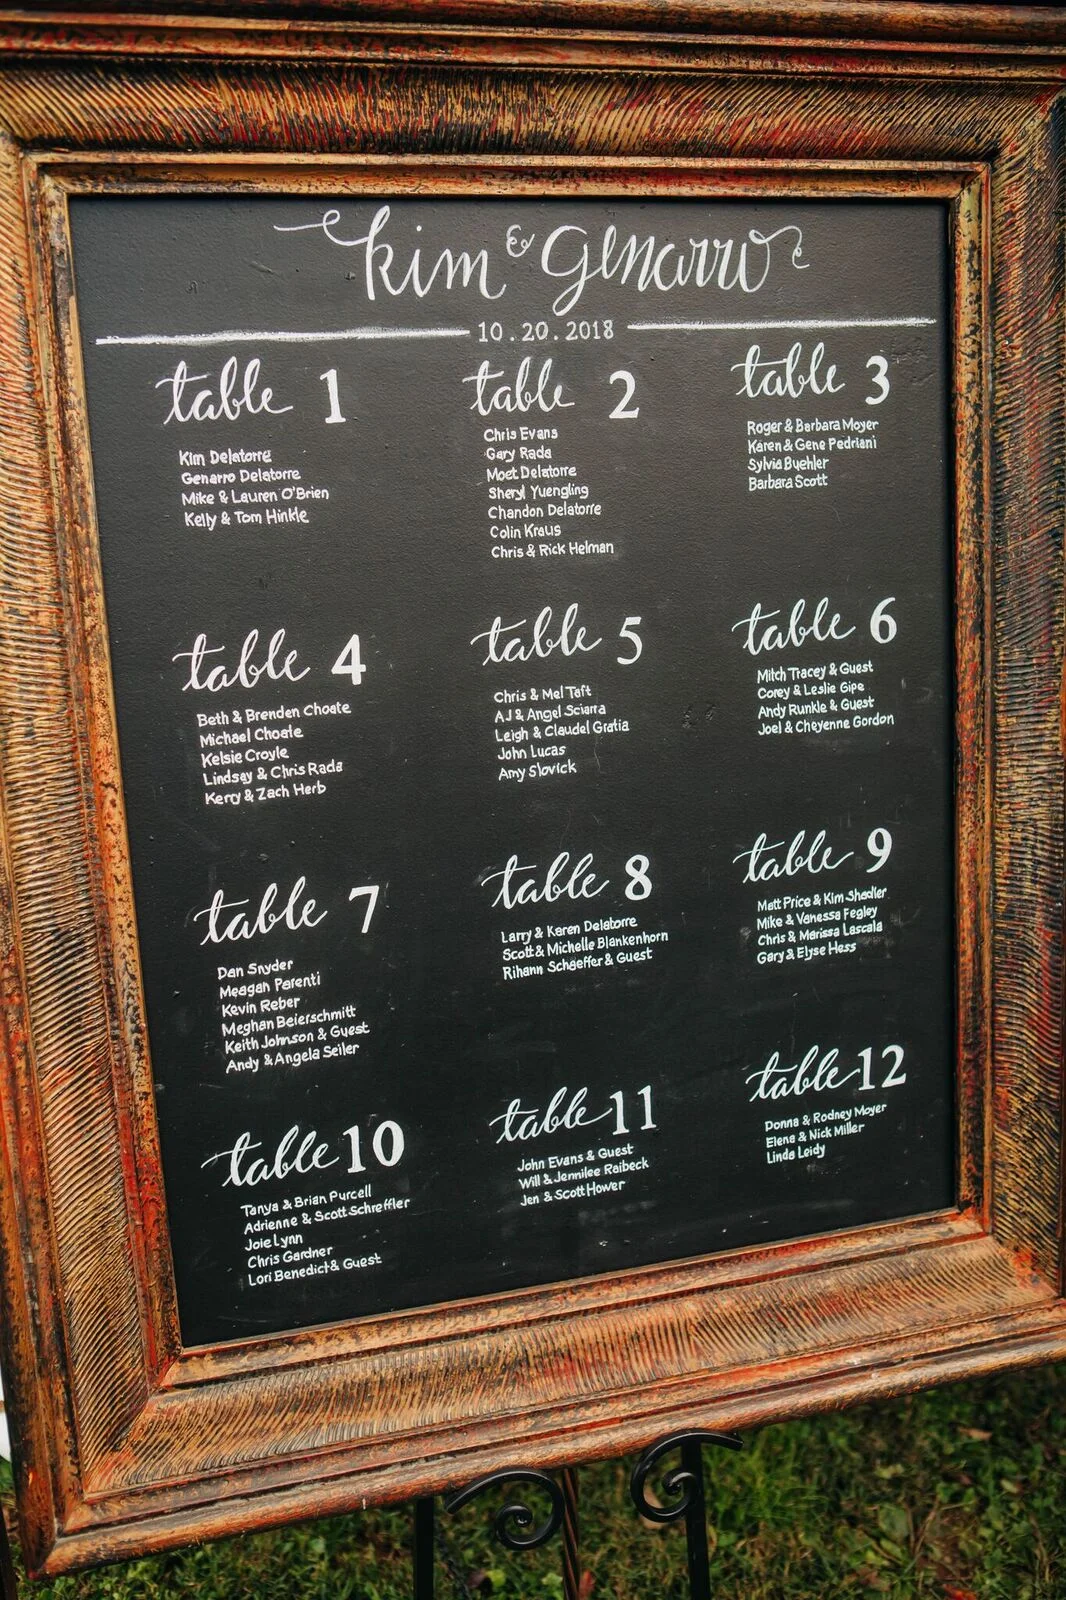 kim & Genarro
10.20.2018
table 1
Kim Delatorre
Genarro Delatorre
Mike & Lauren O'Brien
Kelly & Tom Hinkle
table 2
Chris Evans
Gary Rada
Moet Delatorre
Sheryl Yuengling
Chandon Delatorre
Colin Kraus
Chris & Rick Helman
table 3
Roger & Barbara Moyer
Karen & Gene Pedriani
Sylvia Buehler
Barbara Scott
table 4
Beth & Brenden Choate
Michael Choate
Kelsie Croyle
Lindsay & Chris Rada
Kerry & Zach Herb
table 5
Chris & Mel Taft
AJ & Angel Sciarra
Leigh & Claudel Gratia
John Lucas
Amy Slovick
table 6
Mitch Tracey & Guest
Corey & Leslie Gipe
Andy Runkle & Guest
Joel & Cheyenne Gordon
table 7
Dan Snyder
Meagan Parenti
Kevin Reber
Meghan Beierschmitt
Keith Johnson & Guest
Andy & Angela Seiler
table 8
Larry & Karen Delatorre
Scott & Michelle Blankenhorn
Rihann Schaeffer & Guest
table 9
Matt Price & Kim Shadler
Mike & Vanessa Fegley
Chris & Marissa Lascala
Gary & Elyse Hess
table 10
Tanya & Brian Purcell
Adrienne & Scott Schreffler
Joie Lynn
Chris Gardner
Lori Benedict & Guest
table 11
John Evans & Guest
Will & Jennilee Raibeck
Jen & Scott Hower
table 12
Donna & Rodney Moyer
Elena & Nick Miller
Linda Leidy